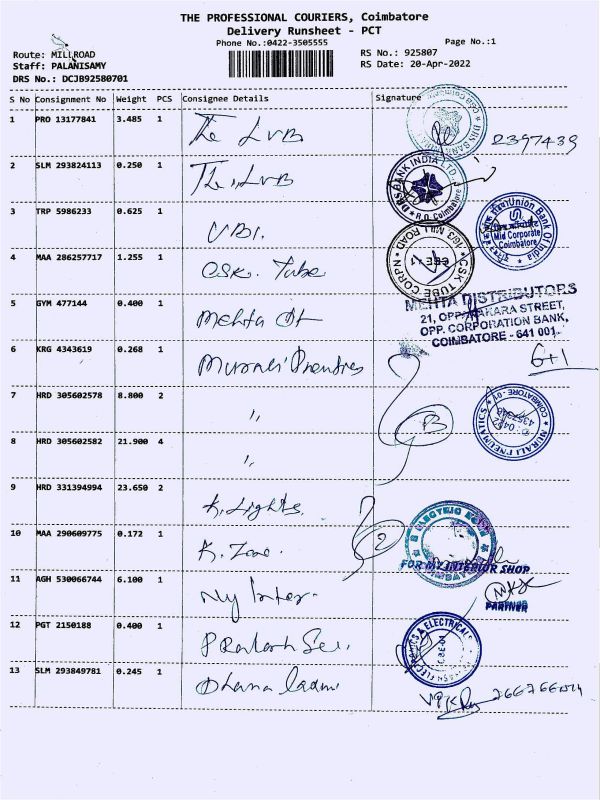 THE PROFESSIONAL COURIERS, Coimbatore
Delivery Runsheet - PCT
Phone No.:0422-3505555
Page No.:1
Route: MILLROAD
RS No.: 925807
Staff: PALANISAMY
RS Date: 20-Apr-2022
DRS No.: DCJB92580701
S No Consignment No Weight PCS Consignee Details Signature
1 PRO 13177841 3.485 1 The LVB 2397439
2 SLM 293824113 0.250 1 The LVB
DBS BANK INDIA LTD. R.O Coimbatore
3 TRP 5986233 0.625 1 UBI.
Union Bank Of India Mid Corporate Coimbatore
4 MAA 286257717 1.255 1 CSK. Tube
CSK TUBE CORPN 163 MILL ROAD CBE-1
5 GYM 477144 0.400 1 Mehta Dt
MEHTA DISTRIBUTORS
21, OPP. STREET,
OPP. CORPORATION BANK,
COIMBATORE - 641 001
6 KRG 4343619 0.268 1 6+1
7 HRD 305602578 8.800 2 "
MURALI PNEUMATICS COIMBATORE
8 HRD 305602582 21.900 4 "
9 HRD 331394994 23.650 2 K. Lights
10 MAA 290609775 0.172 1 K. Zone.
FOR MY INTERIOR SHOP
11 AGH 530066744 6.100 1 My Inter-
PARTNER
12 PGT 2150188 0.400 1
& ELECTRICAL
13 SLM 293849781 0.245 1 Dhana Laxmi